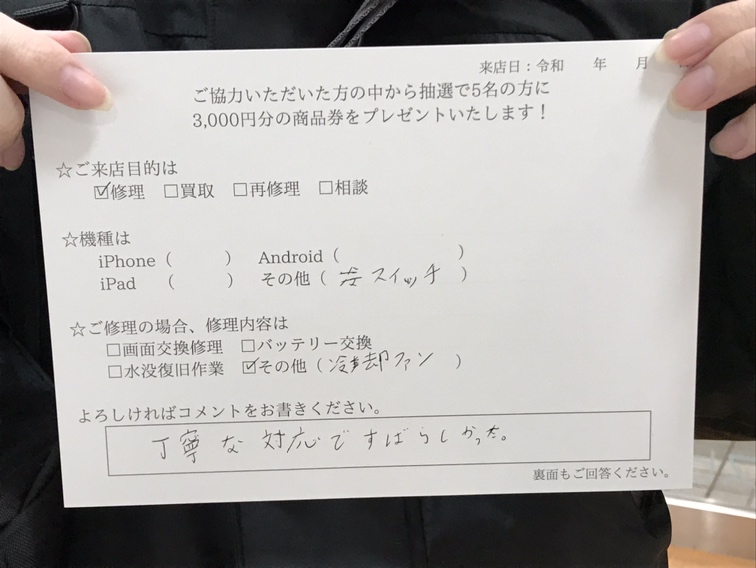 来店日：令和　　年　　月
ご協力いただいた方の中から抽選で5名の方に
3,000円分の商品券をプレゼントいたします！
☆ご来店目的は
☑修理　☐買取　☐再修理　☐相談
☆機種は
iPhone（　　　）　Android（　　　　　　　）
iPad　（　　　）　その他（ スイッチ ）
☆ご修理の場合、修理内容は
☐画面交換修理　☐バッテリー交換
☐水没復旧作業　☑その他（冷却ファン　）
よろしければコメントをお書きください。
丁寧な対応ですばらしかった。
裏面もご回答ください。